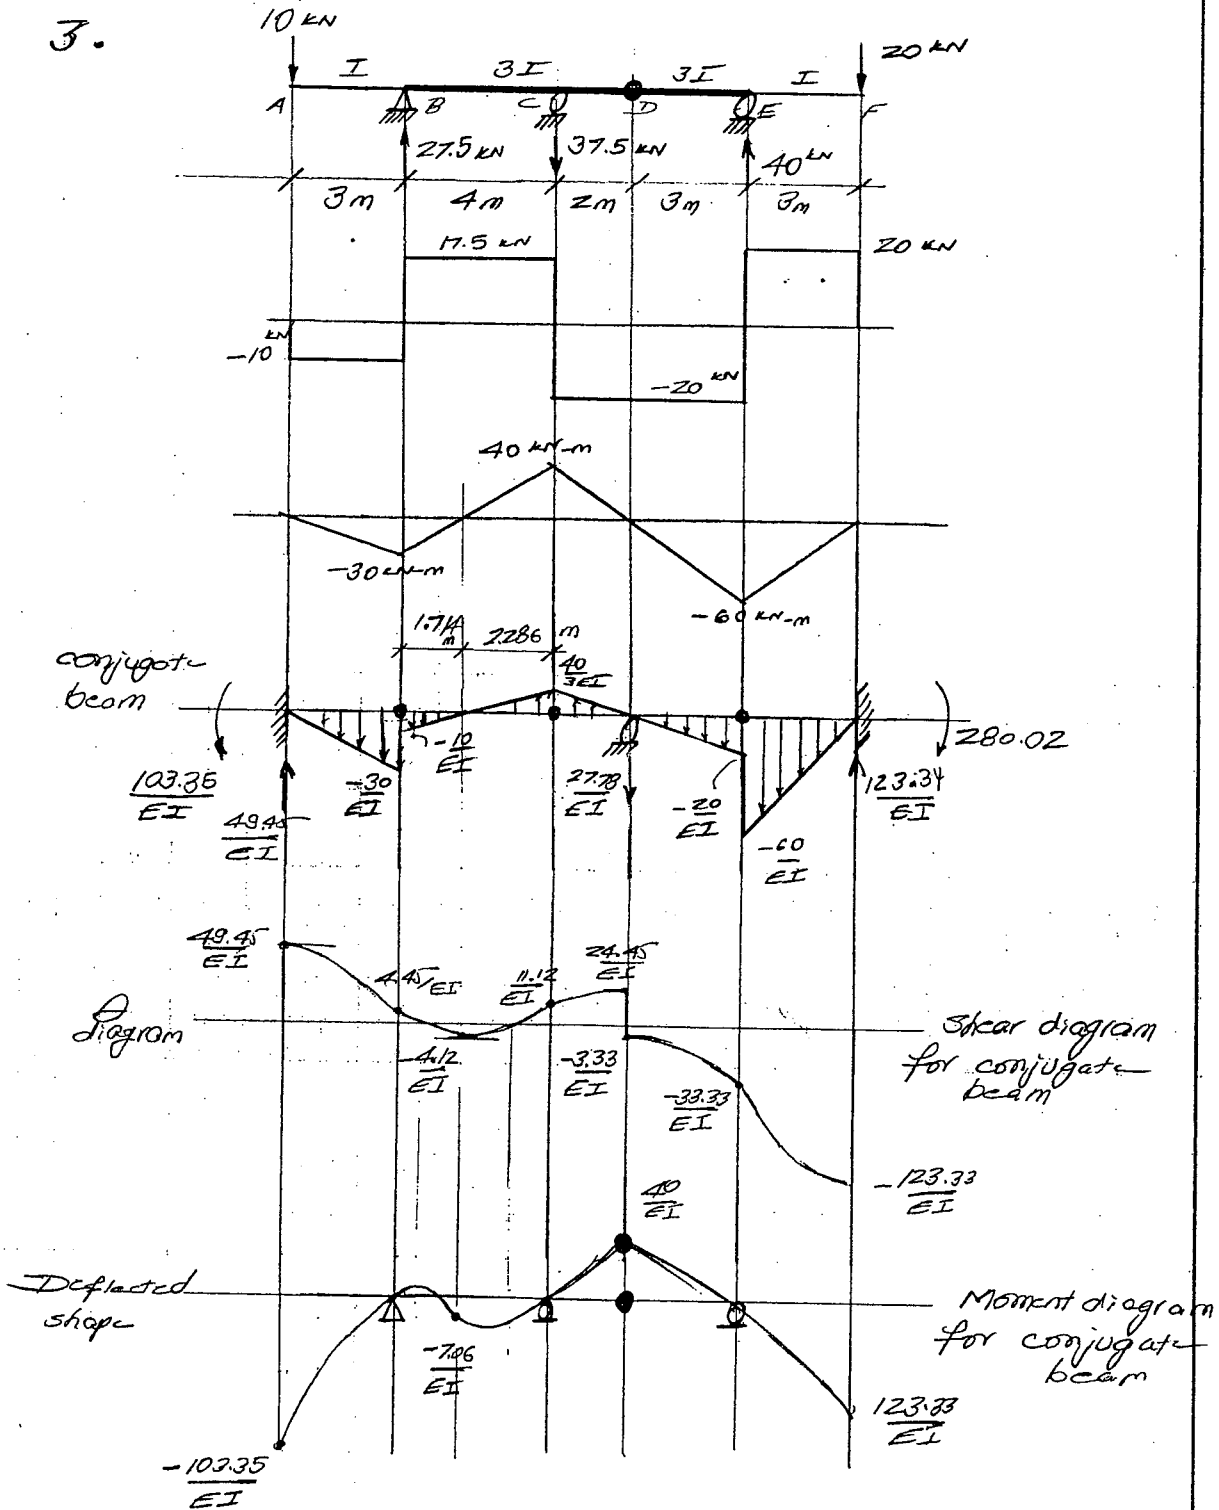 3.
10 KN
20 KN
I
3I
3I
I
A
B
C
D
E
F
27.5 KN
37.5 KN
40 KN
3m
4m
2m
3m
3m
17.5 KN
20 KN
-10 KN
-20 KN
40 KN-m
-30 KN-m
-60 KN-m
1.714 m
2.286 m
conjugate
beam
40/3EI
-10/EI
280.02
103.35/EI
-30/EI
27.78/EI
-20/EI
123.34/EI
49.45/EI
-60/EI
49.45/EI
4.45/EI
11.12/EI
24.45/EI
θ
diagram
Shear diagram
for conjugate
beam
-4.12/EI
-3.33/EI
-33.33/EI
-123.33/EI
40/EI
Deflected
shape
Moment diagram
for conjugate
beam
-7.06/EI
123.33/EI
-103.35/EI